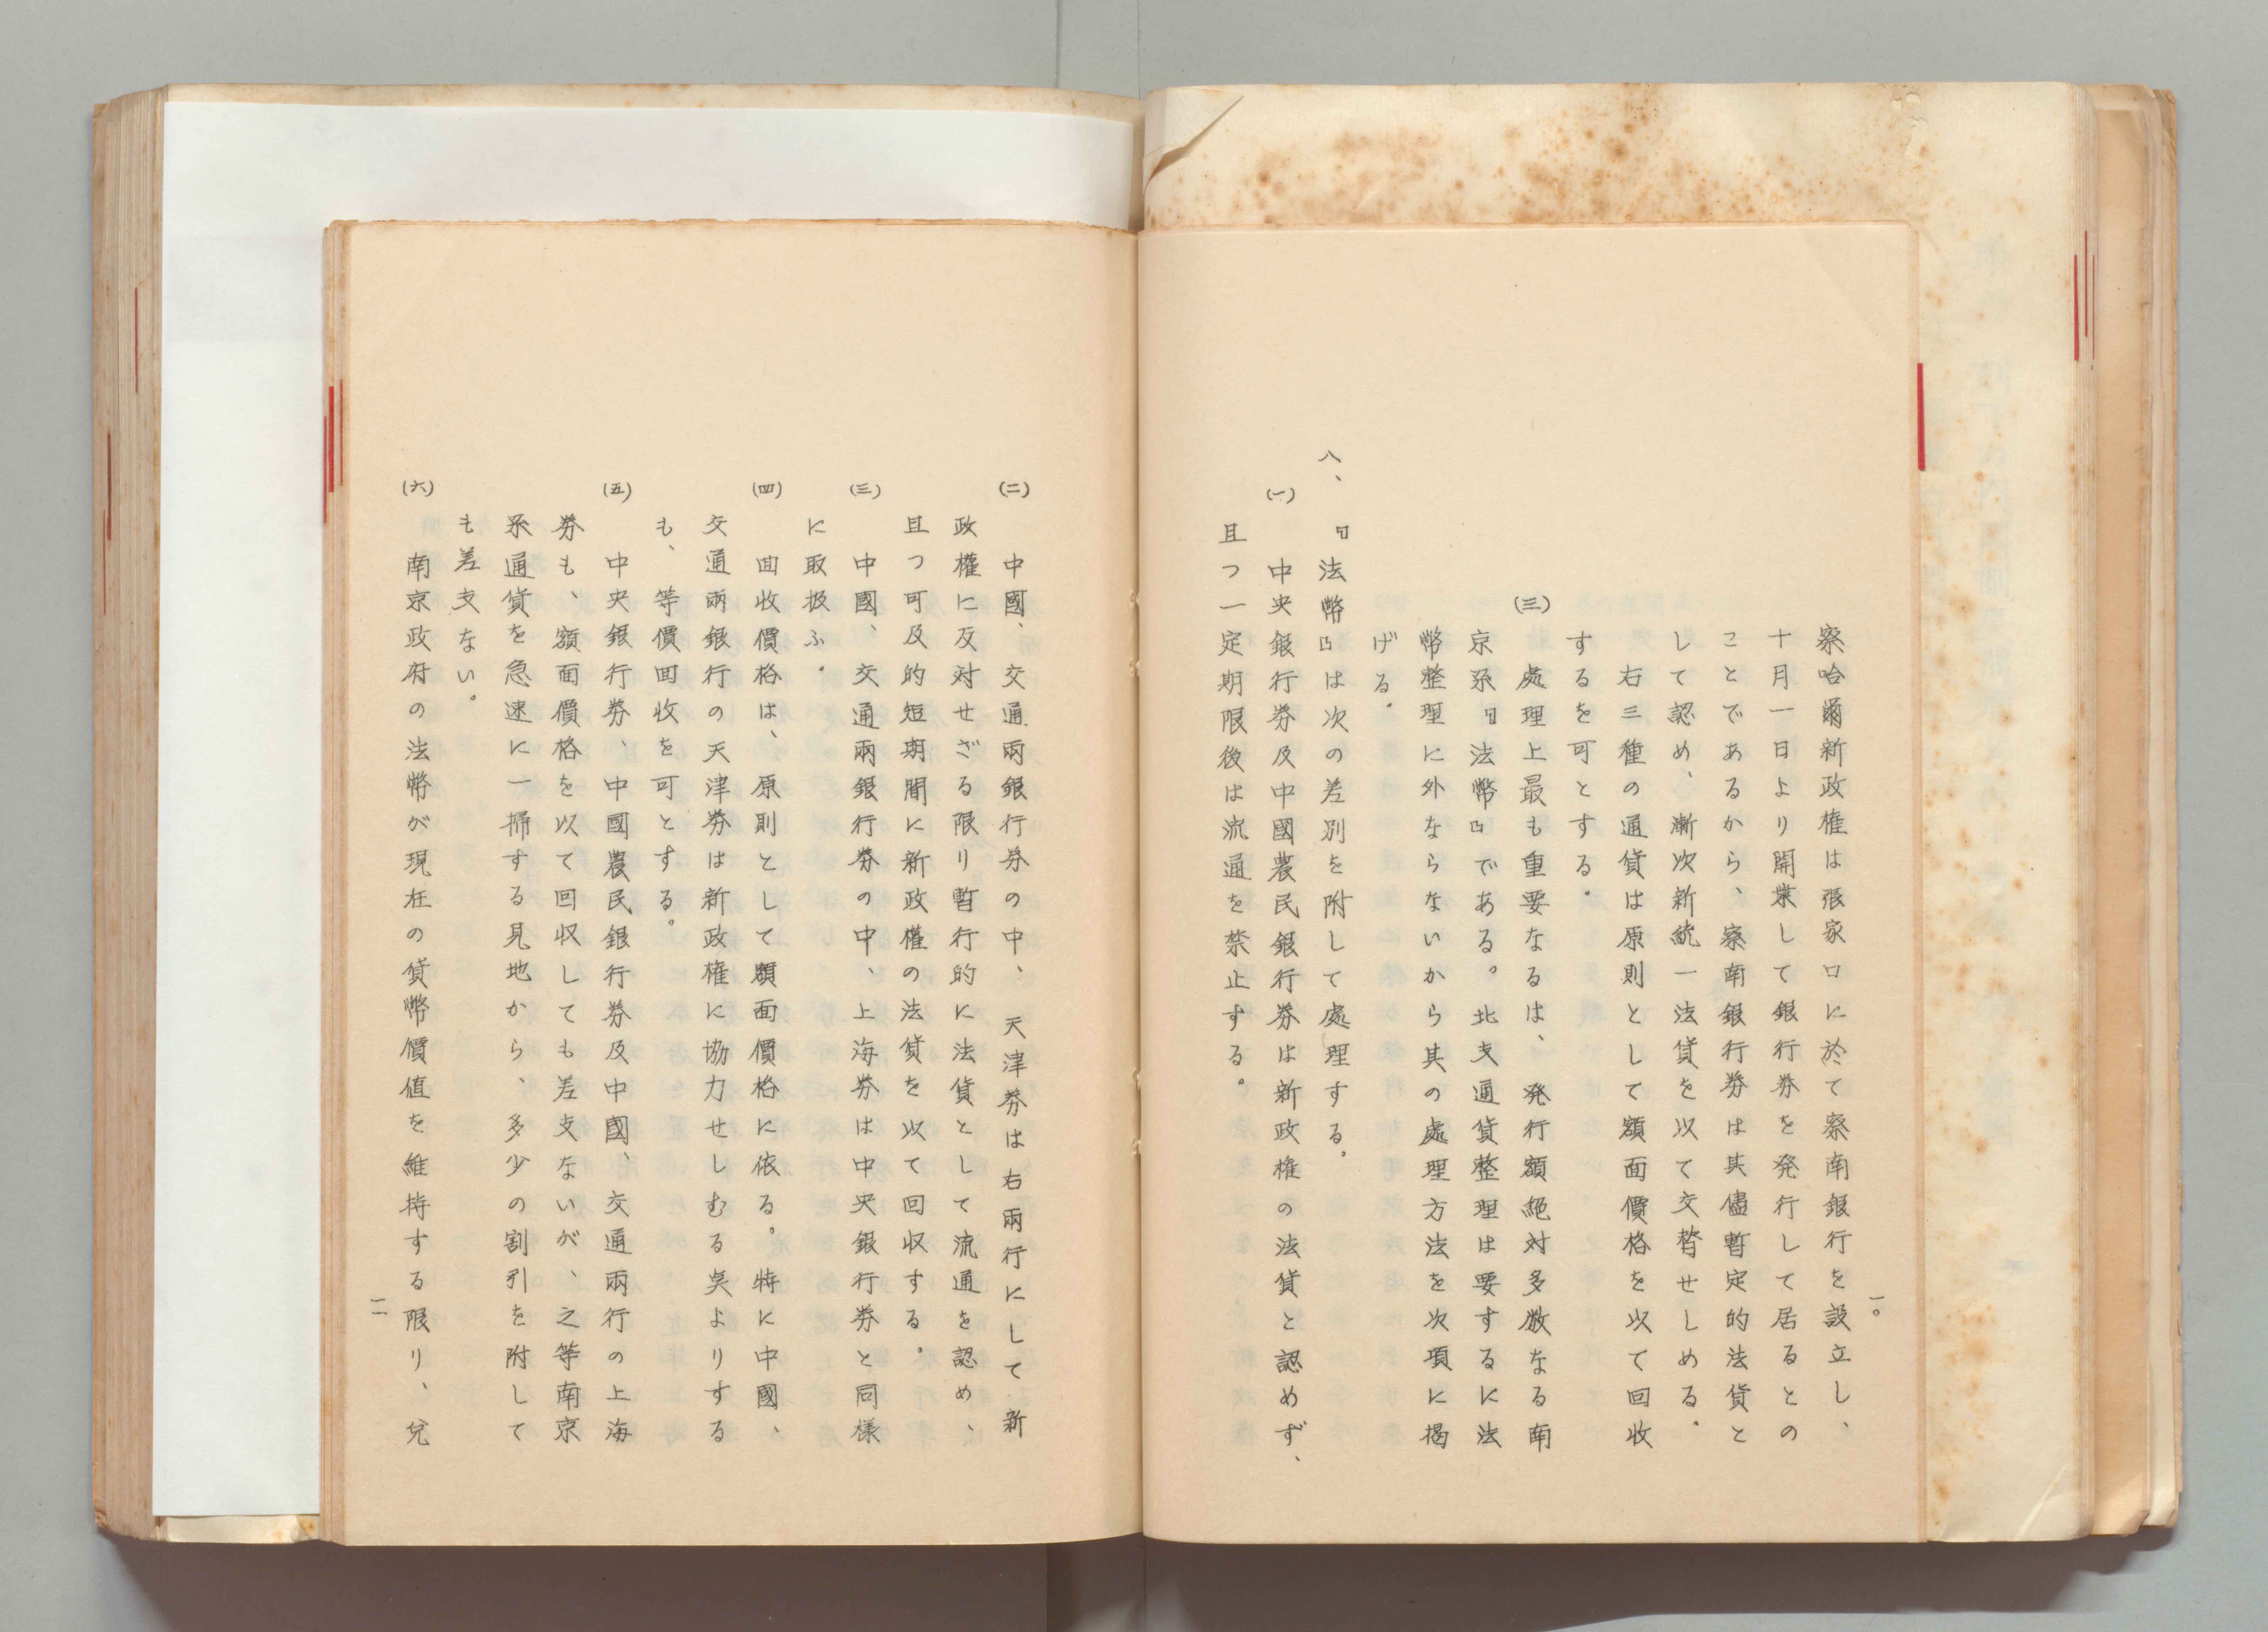 一〇
察哈爾新政権は張家口に於て察南銀行を設立し、
十月一日より開業して銀行券を発行して居るとの
ことであるから、察南銀行券は其儘暫定的法貨と
して認め、漸次新統一法貨を以て交替せしめる。
右三種の通貨は原則として額面價格を以て回收
するを可とする。
(三) 處理上最も重要なるは、発行額絶対多数なる南
京系『法幣』である。北支通貨整理は要するに法
幣整理に外ならないから其の處理方法を次項に掲
げる。
八、『法幣』は次の差別を附して處理する。
(一) 中央銀行券及中國農民銀行券は新政権の法貨と認めず、
且つ一定期限後は流通を禁止する。
(二) 中國、交通兩銀行券の中、天津券は右兩行にして新
政權に反対せざる限り暫行的に法貨として流通を認め、
且つ可及的短期間に新政權の法貨を以て回収する。
(三) 中國、交通兩銀行券の中、上海券は中央銀行券と同様
に取扱ふ。
(四) 回收價格は、原則として額面價格に依る。特に中國、
交通兩銀行の天津券は新政権に協力せしむる奌よりする
も、等價回收を可とする。
(五) 中央銀行券、中國農民銀行券及中國、交通兩行の上海
券も、額面價格を以て回収しても差支ないが、之等南京
系通貨を急速に一掃する見地から、多少の割引を附して
も差支ない。
(六) 南京政府の法幣が現在の貨幣價値を維持する限り、兌
一一